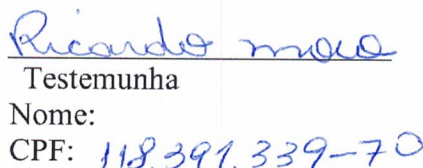 Ricardo
Testemunha
Nome:
CPF: 118.391.339-70